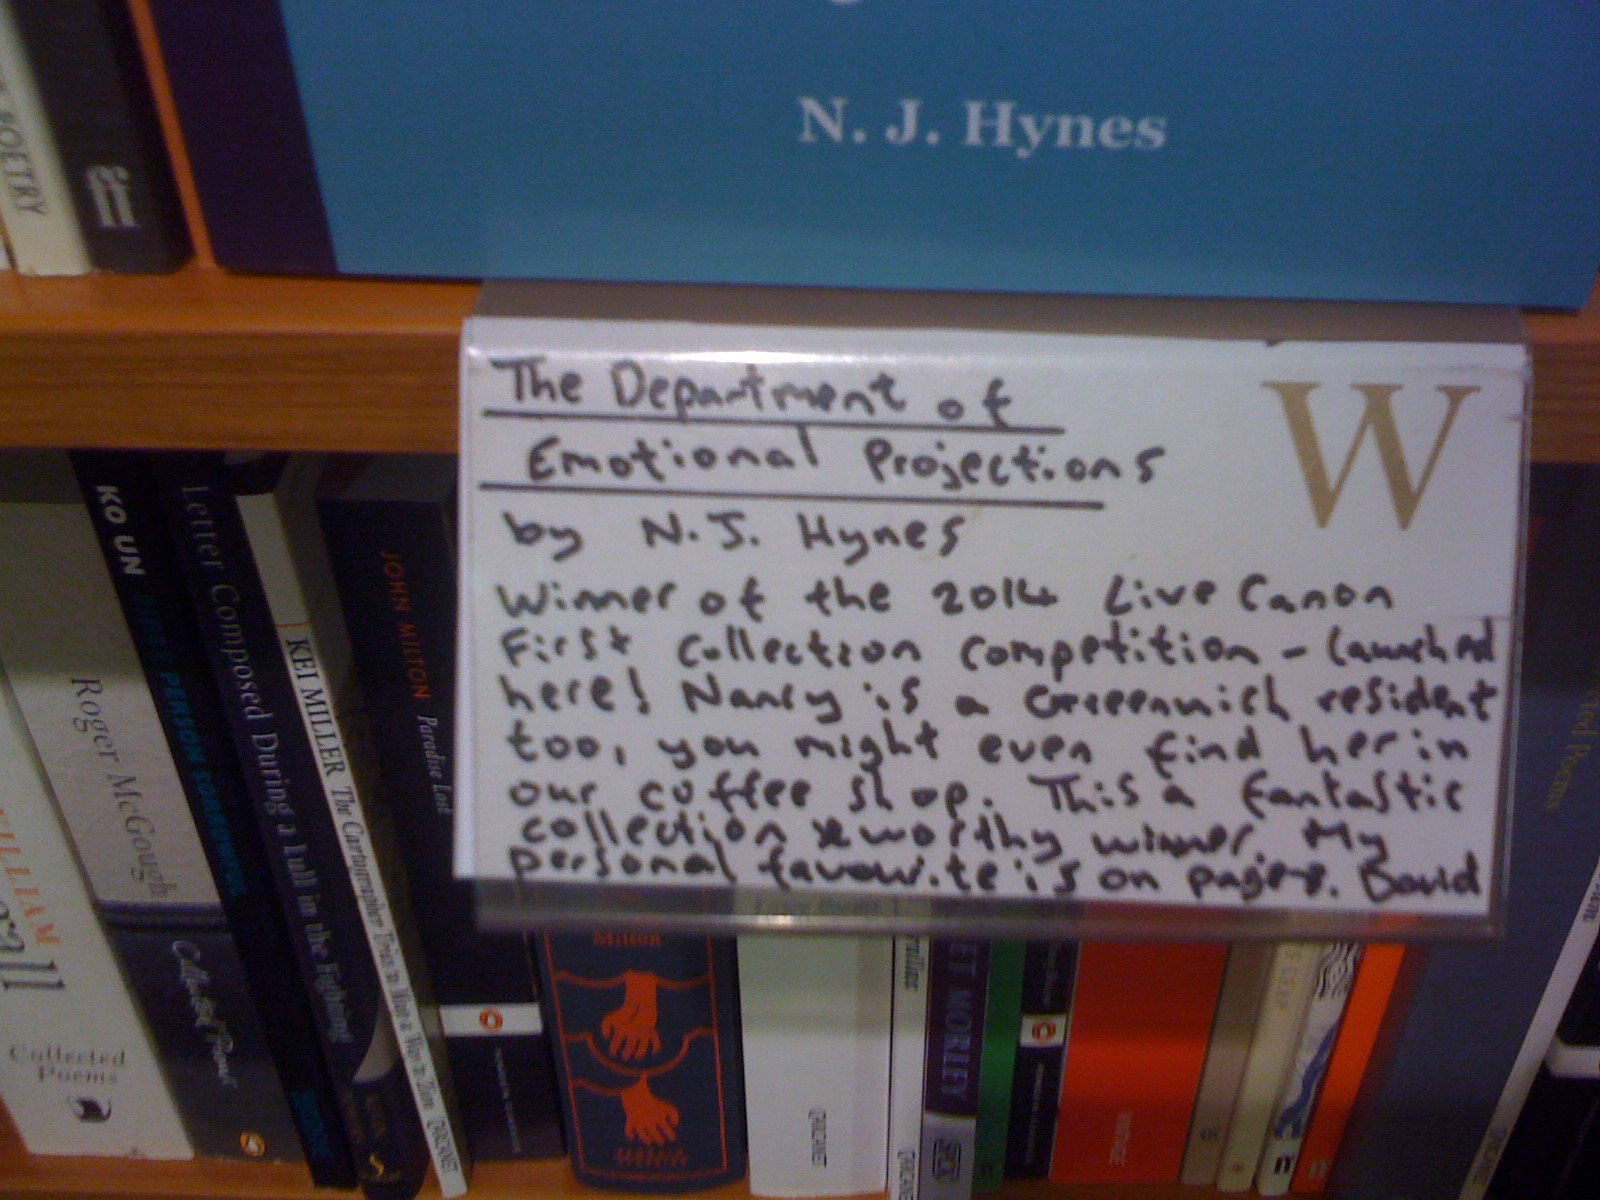 N. J. Hynes
POETRY
The Department of
Emotional Projections
W
by N.J. Hynes
Winner of the 2014 Live Canon
First Collection Competition - launched
here! Nancy is a Greenwich resident
too, you might even find her in
our coffee shop. This a fantastic
collection & worthy winner. My
personal favourite is on page. David
WILLIAM
Collected
Poems
Roger McGough
Collected Poems
KO UN FIRST PERSON SORROWFUL
Letter Composed During a Lull in the Fighting
KEI MILLER The Cartographer Tries to Map a Way to Zion CARCANET
JOHN MILTON Paradise Lost
Milton
CARCANET
CARCANET
ET MORLEY
CARCANET